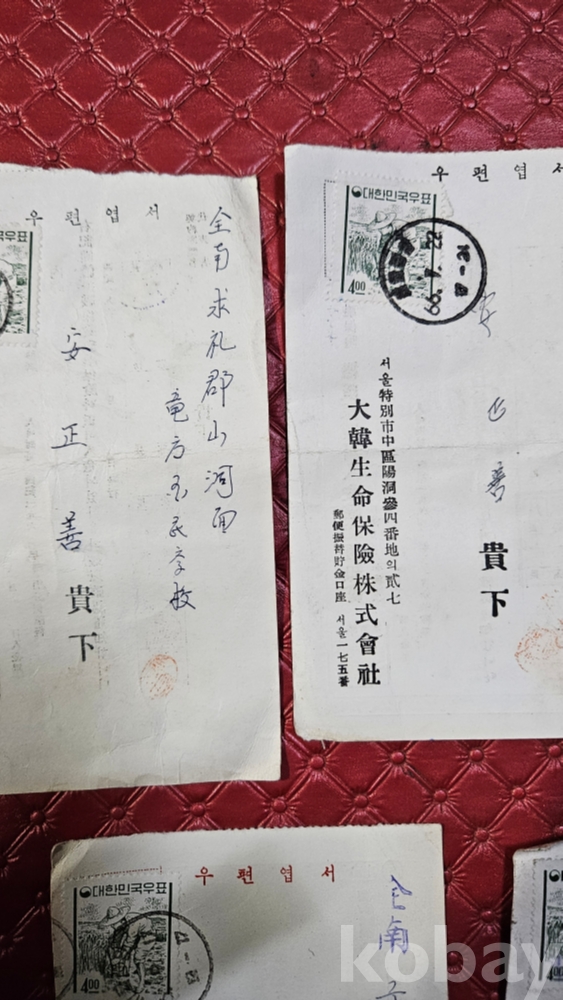 우편엽서
全南求礼郡山洞面
竜方국民学校
安正善
貴下
우편엽서
대한민국우표
4.00
安正善
貴下
서울特別市中區陽洞參四番地의貳七
大韓生命保險株式會社
郵便振替貯金口座 서울一七五番
우편엽서
대한민국우표
4.00
全南
kobay